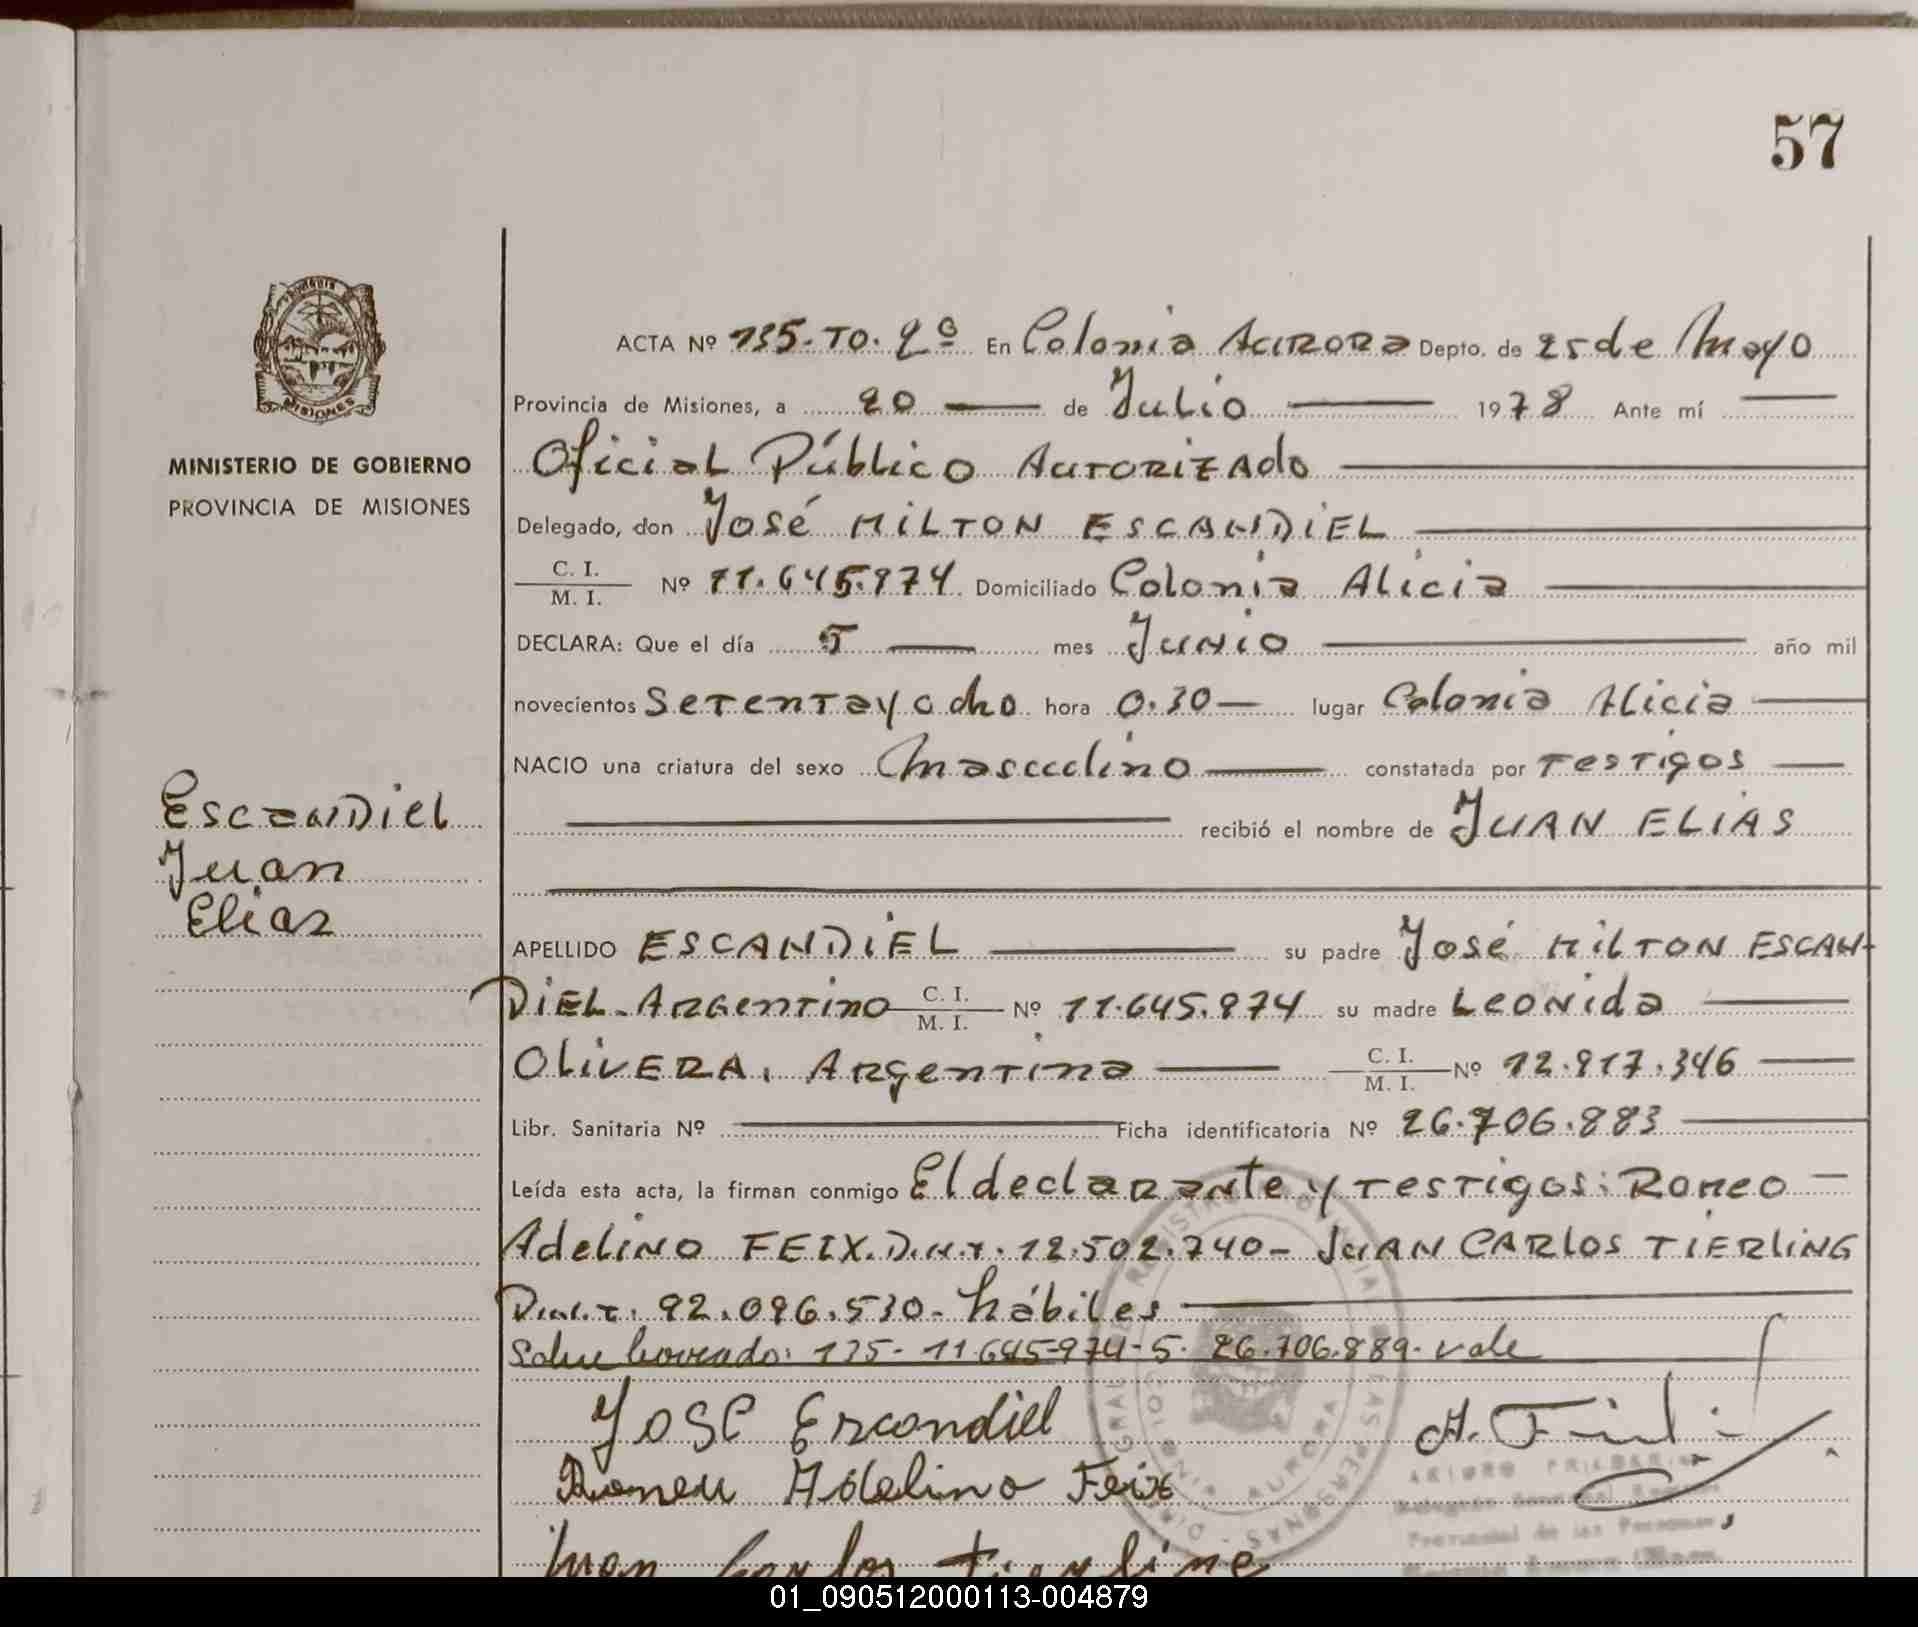 57
MISIONES
MINISTERIO DE GOBIERNO
PROVINCIA DE MISIONES
Escandiel
Juan
Elias
ACTA Nº 135. TO. 2º En Colonia Aurora Depto. de 25 de Mayo
Provincia de Misiones, a 20 — de Julio — 1978 Ante mí —
Oficial Público Autorizado —
Delegado, don José MILTON ESCANDIEL —
C. I. / M. I. Nº 11.645.974 Domiciliado Colonia Alicia —
DECLARA: Que el día 5 — mes Junio — año mil
novecientos setenta y ocho hora 0.30 — lugar Colonia Alicia —
NACIO una criatura del sexo Masculino — constatada por testigos —
— recibió el nombre de JUAN ELIAS
APELLIDO ESCANDIEL — su padre José MILTON ESCAN-
DIEL - Argentino C. I. / M. I. Nº 11.645.974 su madre Leonida —
OLIVERA, Argentina — C. I. / M. I. Nº 12.917.346 —
Libr. Sanitaria Nº — Ficha identificatoria Nº 26.706.883 —
Leída esta acta, la firman conmigo El declarante y testigos: Romeo —
Adelino FEIX. D.N.I. 12.502.740 - JUAN CARLOS TIERLING
D.N.I. 92.096.530 - hábiles —
Sobre borrado: 135 - 11.645-974 - 5. 26.706.889. vale
JOSE Escandiel
Romeu Adelino Feix
Juan Carlos Tierling
COLONIA AURORA
01_090512000113-004879